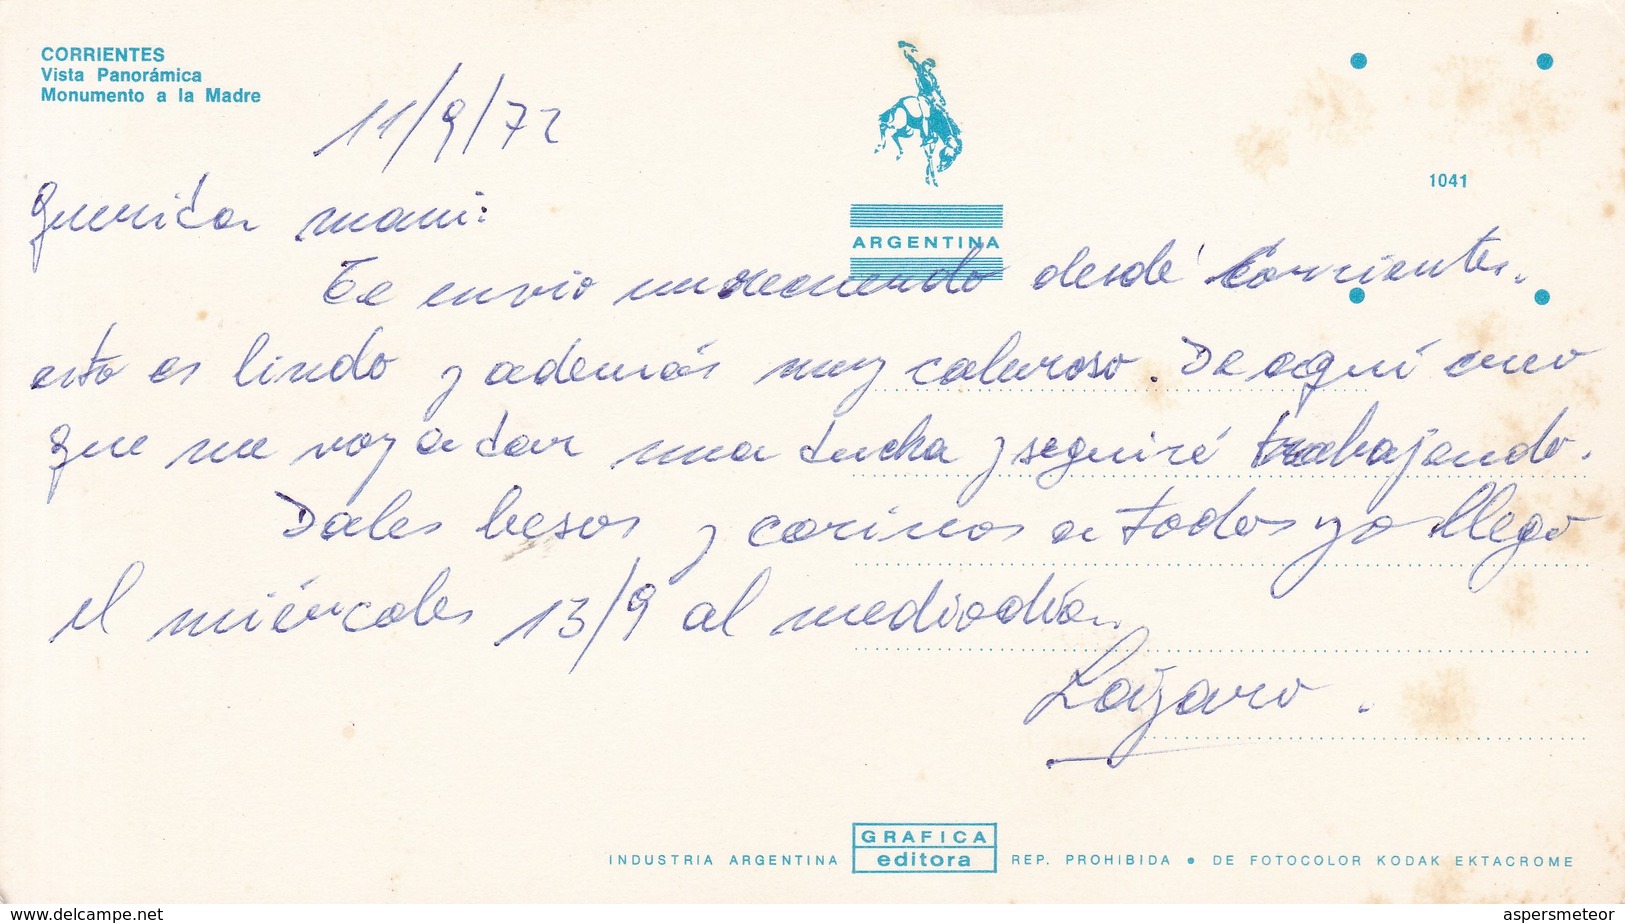 CORRIENTES
Vista Panorámica
Monumento a la Madre
11/9/72
ARGENTINA
1041
Querida mami:
Te envio un recuerdo desde Corrientes.
esto es lindo y además muy caluroso. De aquí creo
que me voy a dar una ducha y seguiré trabajando.
Dales besos y carinos a todos yo llego
el miércoles 13/9 al mediodía.
Lázaro.
GRAFICA
editora
INDUSTRIA ARGENTINA
REP. PROHIBIDA • DE FOTOCOLOR KODAK EKTACROME
www.delcampe.net
aspersmeteor